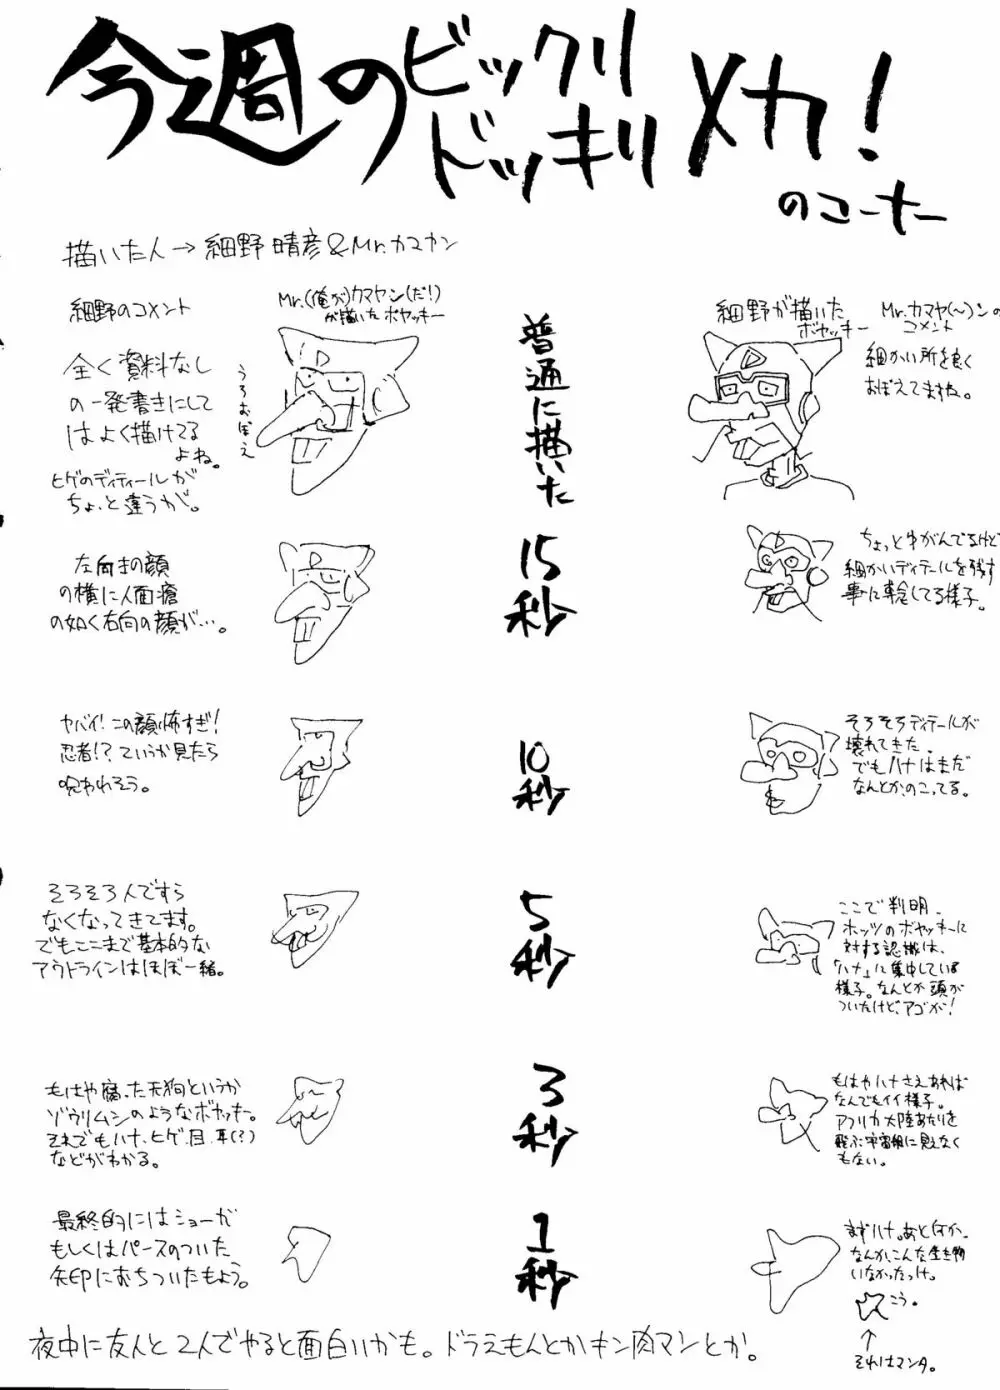 今週のビックリドッキリメカ!
のコーナー
描いた人→細野晴彦&Mr.カマヤン
細野のコメント
Mr.(俺が)カマヤン(だ!)
が描いたボヤッキー
うろおぼえ
全く資料なし
の一発書きにして
はよく描けてる
よね。
ヒゲのディティールが
ちょっと違うが。
普通に描いた
細野が描いた
ボヤッキー
Mr.カマヤ(〜)ンの
コメント
細かい所を良く
おぼえてますね。
左向きの顔
の横に人面瘡
の如く右向の顔が…。
15秒
ちょっとゆがんでるけど
細かいディテールを残す
事に専念してる様子。
ヤバイ!この顔怖すぎ!
忍者!?ていうか見たら
呪われそう。
10秒
そろそろディテールが
壊れてきた。
でもハナはまだ
なんとかのこってる。
そろそろ人ですら
なくなってきてます。
でもここまで基本的な
アウトラインはほぼ一緒。
5秒
ここで判明。
ホッツのボヤッキーに
対する認識は、
「ハナ」に集中している
様子。なんとか頭が
ついたけど、アゴが!
もはや腐った天狗というか
ゾウリムシのようなボヤッキー。
それでもハナ、ヒゲ、目、耳(?)
などがわかる。
3秒
もはやハナさえあれば
なんでもイイ様子。
アフリカ大陸あたりを
飛ぶ宇宙船に見えなく
もない。
最終的にはショーが
もしくはパースのついた
矢印におちついたもよう。
1秒
まずハナ。あと何か。
なんか、こんな生き物
いなかったっけ。
こう。
それはマンタ。
夜中に友人と2人でやると面白いかも。ドラえもんとかキン肉マンとか。